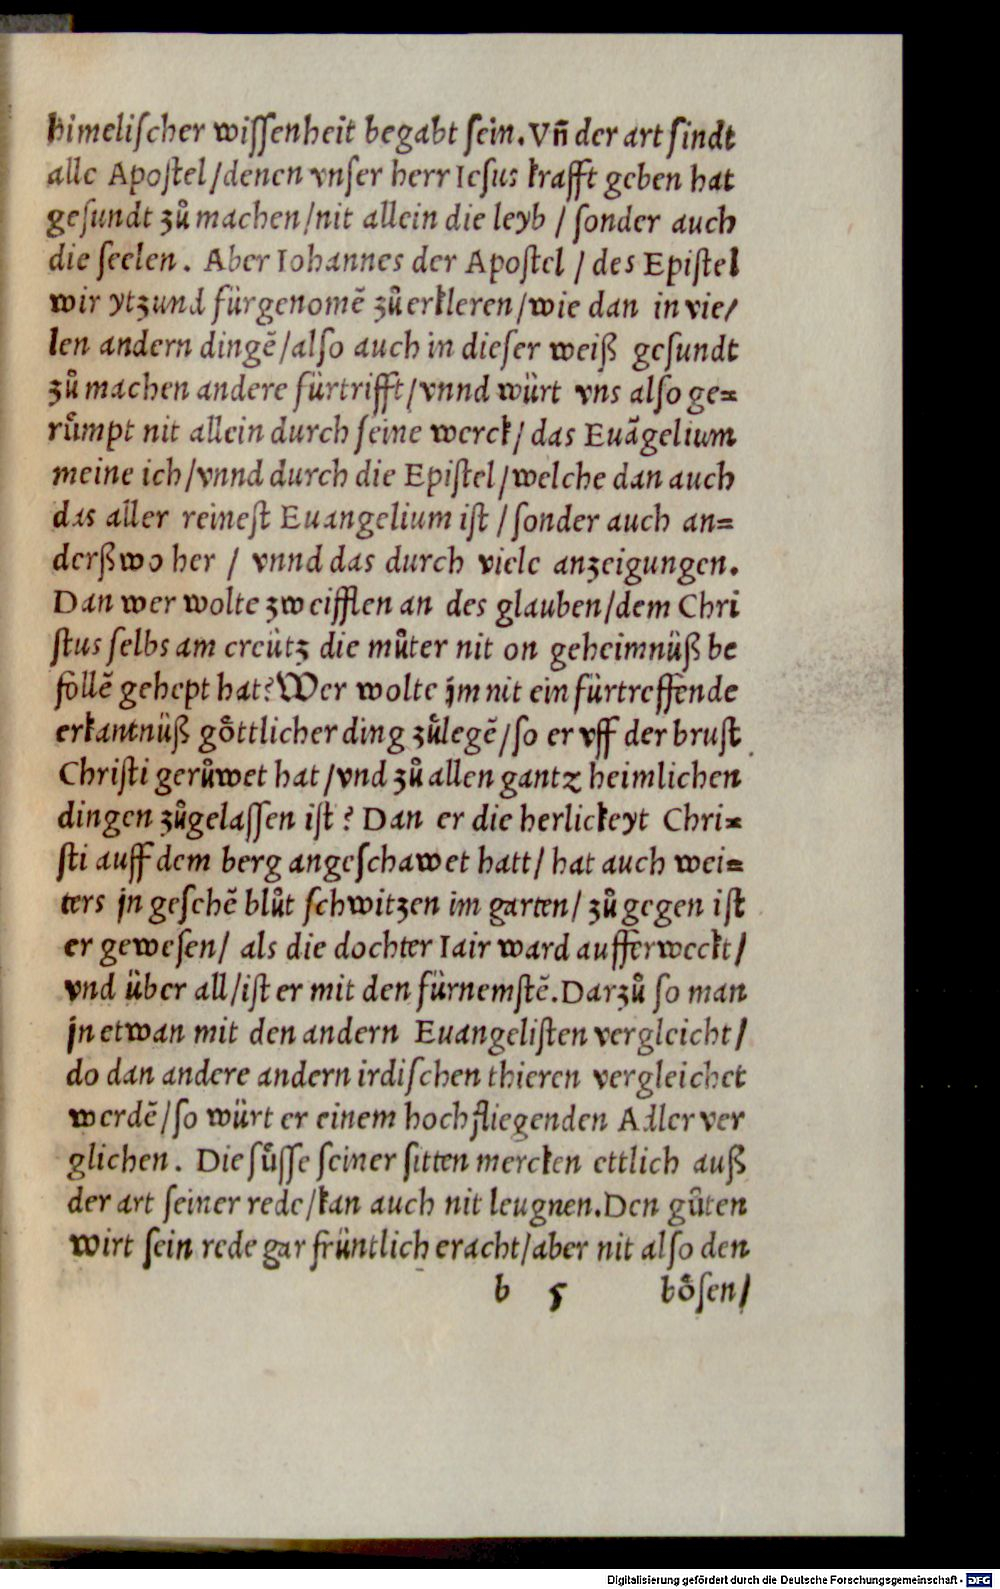 himeliſcher wiſſenheit begabt ſein. Vñ der art ſindt
alle Apoſtel/denen vnſer herr Ieſus krafft geben hat
geſundt zů machen/nit allein die leyb / ſonder auch
die ſeelen. Aber Iohannes der Apoſtel / des Epiſtel
wir ytzund fürgenomẽ zů erkleren/wie dan in vie/
len andern dingẽ/alſo auch in dieſer weiß geſundt
zů machen andere fürtrifft/vnnd würt vns alſo ge=
růmpt nit allein durch ſeine werck/ das Euãgelium
meine ich/vnnd durch die Epiſtel/welche dan auch
das aller reineſt Euangelium iſt / ſonder auch an=
derßwo her / vnnd das durch viele anzeigungen.
Dan wer wolte zweifflen an des glauben/dem Chri
ſtus ſelbs am creütz die můter nit on geheimnüß be
follẽ gehept hat? Wer wolte jm nit ein fürtreffende
erkantnüß goͤttlicher ding zůlegẽ/ſo er vff der bruſt
Chriſti gerůwet hat/vnd zů allen gantz heimlichen
dingen zůgelaſſen iſt? Dan er die herlickeyt Chri=
ſti auff dem berg angeſchawet hatt/ hat auch wei=
ters jn geſehẽ blůt ſchwitzen im garten/ zů gegen iſt
er geweſen/ als die dochter Iair ward aufferweckt/
vnd über all/iſt er mit den fürnemſtẽ. Darzů ſo man
jn etwan mit den andern Euangeliſten vergleicht/
do dan andere andern irdiſchen thieren vergleichet
werdẽ/ſo würt er einem hochfliegenden Adler ver
glichen. Die ſůſſe ſeiner ſitten mercken ettlich auß
der art ſeiner rede/kan auch nit leugnen. Den gůten
wirt ſein rede gar früntlich eracht/aber nit alſo den
b 5 boͤſen/
Digitalisierung gefördert durch die Deutsche Forschungsgemeinschaft - DFG